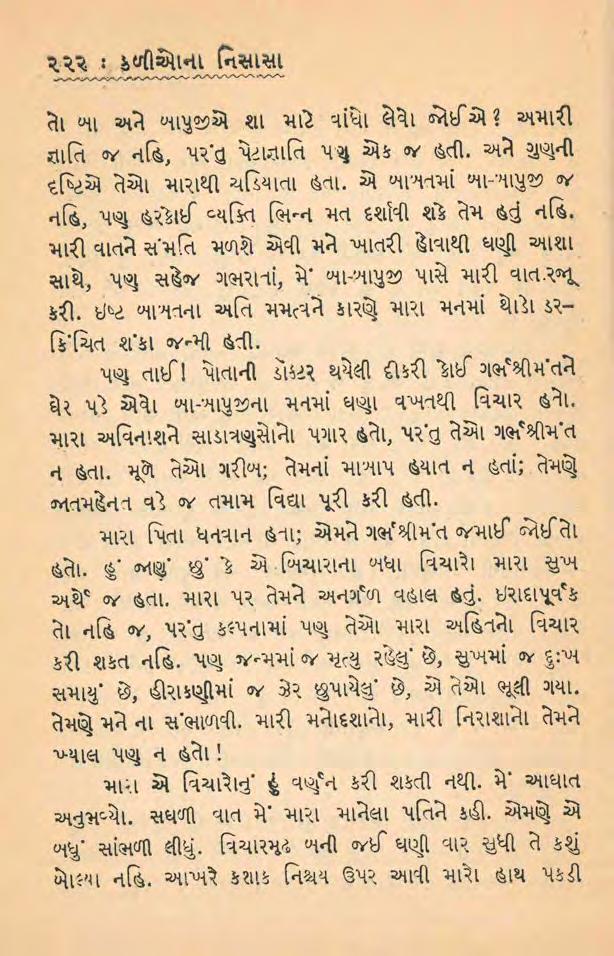 ૨૨૨ : કળીઓના નિસાસા
તો બા અને બાપુજીએ શા માટે વાંધો લેવો જોઈએ? અમારી
જ્ઞાતિ જ નહિ, પરંતુ પેટાજ્ઞાતિ પણ એક જ હતી. અને ગુણની
દૃષ્ટિએ તેઓ મારાથી ચડિયાતા હતા. એ બાબતમાં બા-બાપુજી જ
નહિ, પણ હરકોઈ વ્યક્તિ ભિન્ન મત દર્શાવી શકે તેમ હતું નહિ.
મારી વાતને સંમતિ મળશે એવી મને ખાતરી હોવાથી ઘણી આશા
સાથે, પણ સહેજ ગભરાતાં, મેં બા-બાપુજી પાસે મારી વાત.રજૂ
કરી. ઇષ્ટ બાબતના અતિ મમત્વને કારણે મારા મનમાં થોડો ડર–
કિંચિત શંકા જન્મી હતી.
પણ તાઈ! પોતાની ડૉકટર થયેલી દીકરી કોઈ ગર્ભશ્રીમંતને
ઘેર પડે એવો બા-બાપુજીના મનમાં ઘણા વખતથી વિચાર હતો.
મારા અવિનાશને સાડાત્રણસોનો પગાર હતો, પરંતુ તેઓ ગર્ભશ્રીમંત
ન હતા. મૂળે તેઓ ગરીબ; તેમનાં માબાપ હયાત ન હતાં; તેમણે
જાતમહેનત વડે જ તમામ વિદ્યા પૂરી કરી હતી.
મારા પિતા ધનવાન હતા; એમને ગર્ભશ્રીમંત જમાઈ જોઈતો
હતો. હું જાણું છું કે એ બિચારાના બધા વિચારો મારા સુખ
અર્થે જ હતા. મારા પર તેમને અનર્ગળ વહાલ હતું. ઇરાદાપૂર્વક
તો નહિ જ, પરંતુ કલ્પનામાં પણ તેઓ મારા અહિતનો વિચાર
કરી શકત નહિ. પણ જન્મમાં જ મૃત્યુ રહેલું છે, સુખમાં જ દુઃખ
સમાયું છે, હીરાકણીમાં જ ઝેર છુપાયેલું છે, એ તેઓ ભૂલી ગયા.
તેમણે મને ના સંભળાવી. મારી મનોદશાનો, મારી નિરાશાનો તેમને
ખ્યાલ પણ ન હતો!
મારા એ વિચારોનું હું વર્ણન કરી શકતી નથી. મેં આઘાત
અનુભવ્યો. સઘળી વાત મેં મારા માનેલા પતિને કહી. એમણે એ
બધું સાંભળી લીધું. વિચારમૂઢ બની જઈ ઘણી વાર સુધી તે કશું
બોલ્યા નહિ. આખરે કશાક નિશ્ચય ઉપર આવી મારો હાથ પકડી